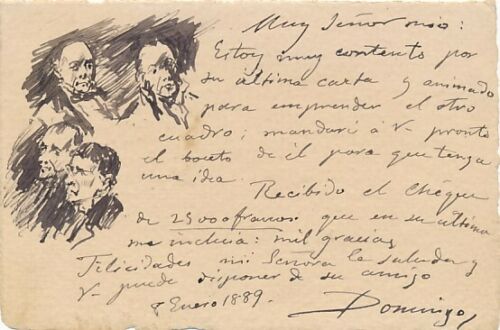 Muy Señor mio:
Estoy muy contento por
su ultima carta y animado
para emprender el otro
cuadro; mandaré á V. pronto
el boceto de él para que tenga
una idea.
Recibido el Chéque
de 25000 francos que en su ultima
me incluia: mil gracias,
Felicidades mi Señora le saluda y
V. puede disponer de su amigo
8 Enero 1889.
Domingo,